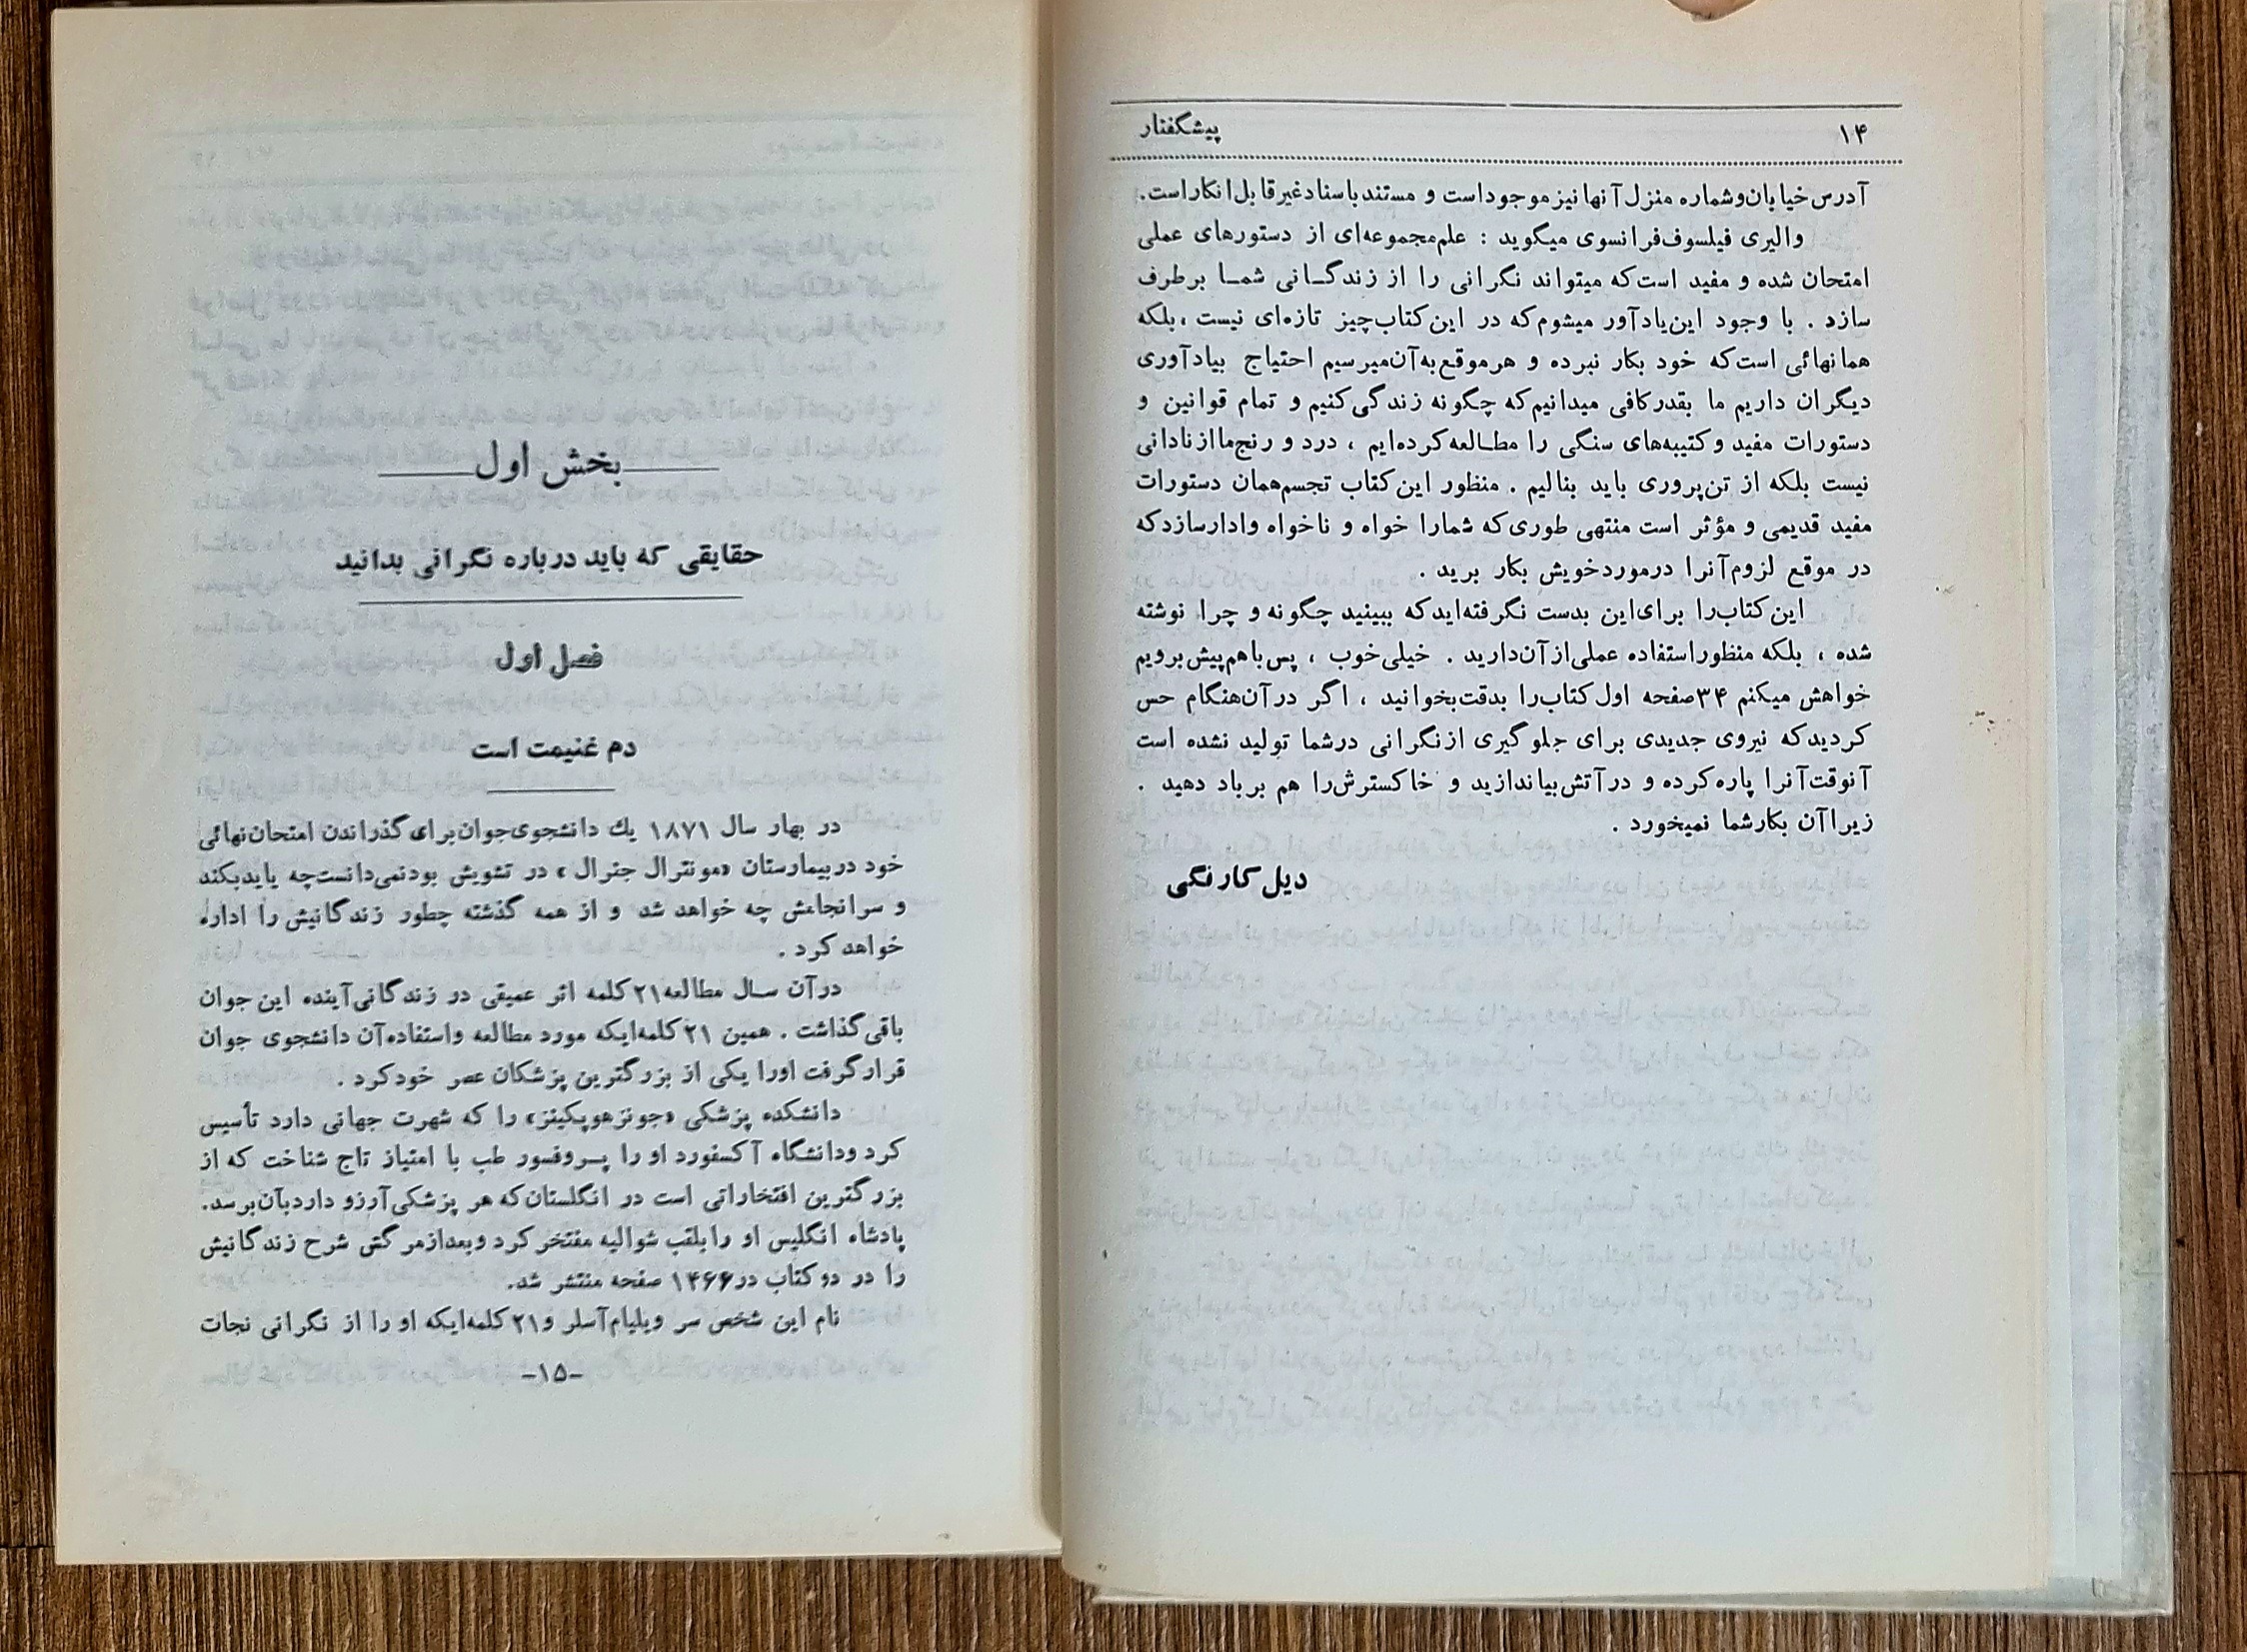 ۱۴
پیشگفتار
آدرس خیابان و شماره منزل آنها نیز موجود است و مستند با سناد غیر قابل انکار است.
والیری فیلسوف فرانسوی میگوید : علم مجموعه‌ای از دستورهای عملی
امتحان شده و مفید است که میتواند نگرانی را از زندگـانی شمـا برطرف
سازد . با وجود این یادآور میشوم که در این کتاب چیز تازه‌ای نیست ، بلکه
همانهائی است که خود بکار نبرده و هر موقع به آن میرسیم احتیاج بیادآوری
دیگران داریم ما بقدر کافی میدانیم که چگونه زندگی کنیم و تمام قوانین و
دستورات مفید و کتیبه‌های سنگی را مطـالعه کرده‌ایم ، درد و رنج ما از نادانی
نیست بلکه از تن‌پروری باید بنالیم . منظور این کتاب تجسم همان دستورات
مفید قدیمی و مؤثر است منتهی طوری که شما را خواه و ناخواه وادار سازد که
در موقع لزوم آنرا در مورد خویش بکار برید .
این کتاب را برای این بدست نگرفته‌اید که ببینید چگونه و چرا نوشته
شده ، بلکه منظور استفاده عملی از آن دارید . خیلی خوب ، پس با هم پیش برویم
خواهش میکنم ۳۴ صفحه اول کتاب را بدقت بخوانید ، اگر در آن هنگام حس
کردید که نیروی جدیدی برای جلوگیری از نگرانی در شما تولید نشده است
آنوقت آنرا پاره کرده و در آتش بیاندازید و خاکسترش را هم بر باد دهید .
زیرا آن بکار شما نمیخورد .
دیل کارنگی
بخش اول
حقایقی که باید درباره نگرانی بدانید
فصل اول
دم غنیمت است
در بهار سال ۱۸۷۱ یك دانشجوی جوان برای گذراندن امتحان نهائی
خود در بیمارستان «مونترال جنرال» در تشویش بود نمی‌دانست چه باید بکند
و سرانجامش چه خواهد شد و از همه گذشته چطور زندگانیش را اداره
خواهد کرد .
در آن سـال مطالعه ۲۱ کلمه اثر عمیقی در زندگانی آینده این جوان
باقی گذاشت . همین ۲۱ کلمه‌ایکه مورد مطالعه و استفاده آن دانشجوی جوان
قرار گرفت او را یکی از بزرگترین پزشکان عصر خود کرد .
دانشکده پزشکی «جونز هوپکینز» را که شهرت جهانی دارد تأسیس
کرد و دانشگاه آکسفورد او را پـروفسور طب با امتیاز تاج شناخت که از
بزرگترین افتخاراتی است در انگلستان که هر پزشکی آرزو دارد بآن برسد.
پادشاه انگلیس او را بلقب شوالیه مفتخر کرد و بعد از مرگش شرح زندگانیش
را در دو کتاب در ۱۴۶۶ صفحه منتشر شد.
نام این شخص سر ویلیام آسلر و ۲۱ کلمه‌ایکه او را از نگرانی نجات
-۱۵-